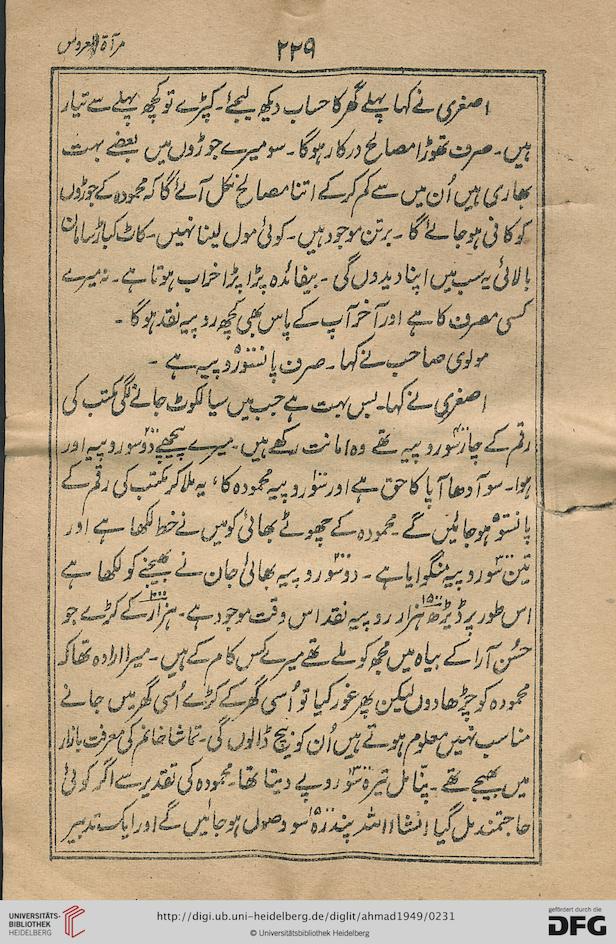 مرآۃ العروس
۲۲۹
اصغری نے کہا پہلے گھر کا حساب دیکھ لیجئے۔ کپڑے تو کچھ پہلے سے تیار
ہیں۔ صرف تھوڑا مصالح درکار ہوگا۔ سو میرے جوڑوں میں بعضے بہت
بھاری ہیں اُن میں سے کم کر کے اتنا مصالح نکل آئے گا کہ محمودہ کے جوڑوں
کو کافی ہو جائے گا۔ برتن موجود ہیں۔ کوئی مول لینا نہیں۔ کاٹ کباڑ سامان
بالائی یہ سب میں اپنا دیدوں گی۔ بیفائدہ پڑا پڑا خراب ہوتا ہے۔ نہ میرے
کسی مصرف کا ہے اور آخر آپ کے پاس بھی کچھ روپیہ نقد ہوگا۔
مولوی صاحب نے کہا۔ صرف پانسو روپیہ ہے۔
اصغری نے کہا۔ بس بہت ہے جب میں سیالکوٹ جانے لگی مکتب کی
رقم کے چار سو روپیہ تھے وہ امانت رکھے ہیں۔ میرے پیچھے دو سو روپیہ اور
ہوا۔ سو آدھا آپا کا حق ہے اور سو روپیہ محمودہ کا، یہ ملا کر مکتب کی رقم کے
پانسو ہو جائیں گے۔ محمودہ کے چھوٹے بھائی کو میں نے خط لکھا ہے اور
تین سو روپیہ منگوایا ہے۔ دو سو روپیہ بھائی جان نے بھیجنے کو لکھا ہے
اس طور پر ڈیڑھ ۱۵۰۰ ہزار روپیہ نقد اس وقت موجود ہے۔ ہزار کے کڑے جو
حُسن آرا کے بیاہ میں مجھ کو ملے تھے میرے کس کام کے ہیں۔ میرا ارادہ تھا کہ
محمودہ کو چڑھا دوں لیکن پھر غور کیا تو اُسی گھر کے کڑے اُسی گھر میں جانے
مناسب نہیں معلوم ہوتے ہیں اُن کو بیچ ڈالوں گی۔ تماشا خانم کی معرفت بازار
میں بھیجے تھے۔ پنا مل تیرہ سو روپے دیتا تھا۔ محمودہ کی تقدیر سے اگر کوئی
حاجتمند مل گیا انشاء اللہ پندرہ سو وصول ہو جائیں گے اور ایک تدبیر
UNIVERSITÄTS-
BIBLIOTHEK
HEIDELBERG
http://digi.ub.uni-heidelberg.de/diglit/ahmad1949/0231
© Universitätsbibliothek Heidelberg
gefördert durch die
DFG